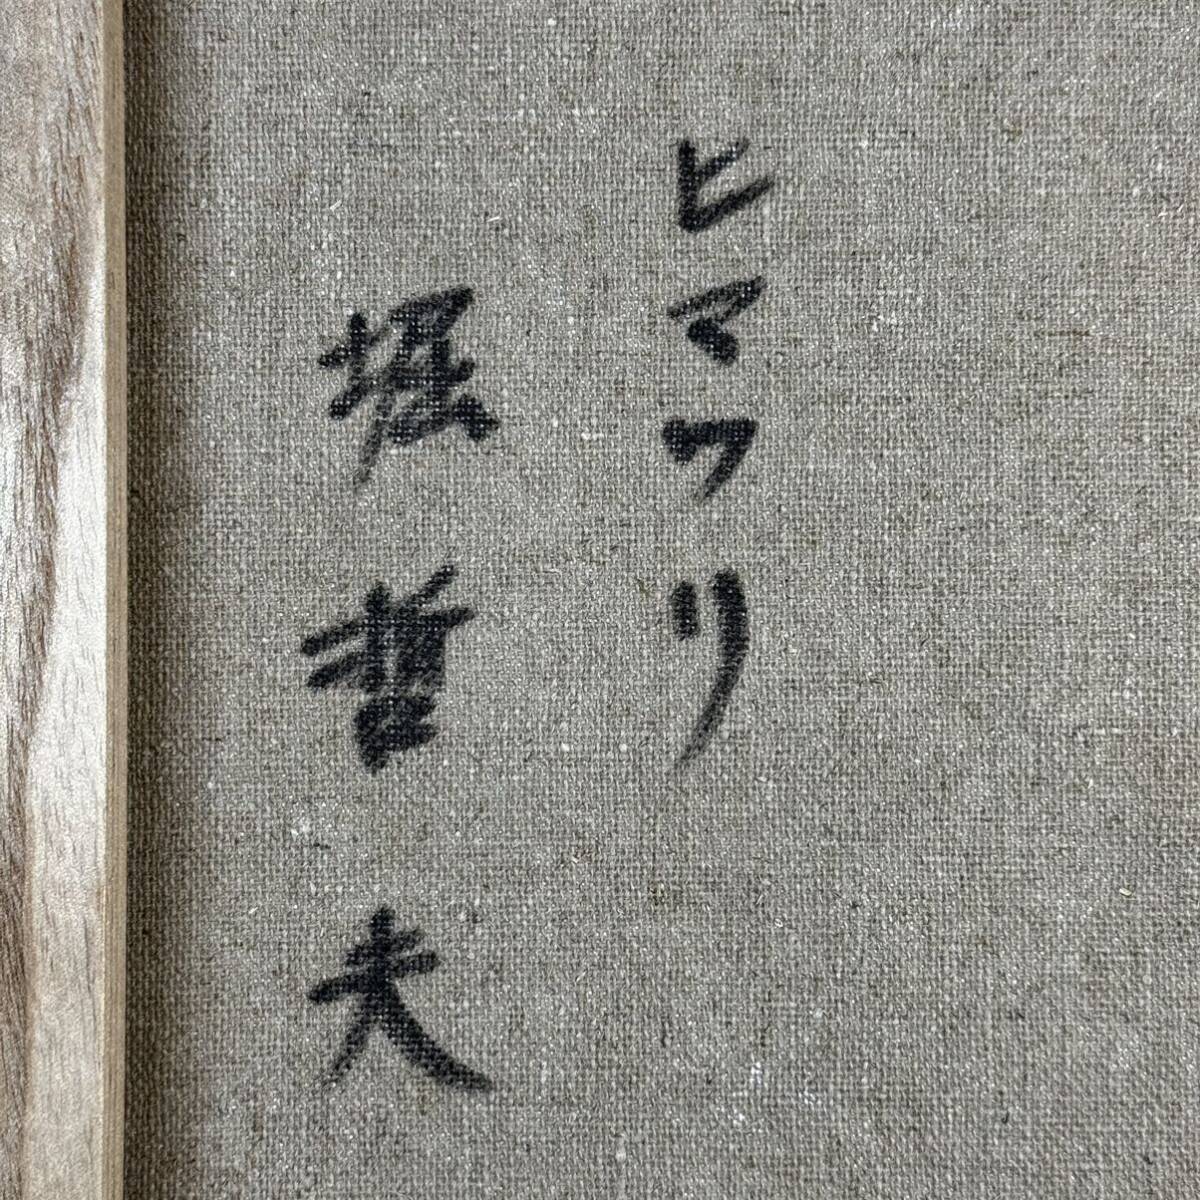 ヒマワリ
堀哲夫